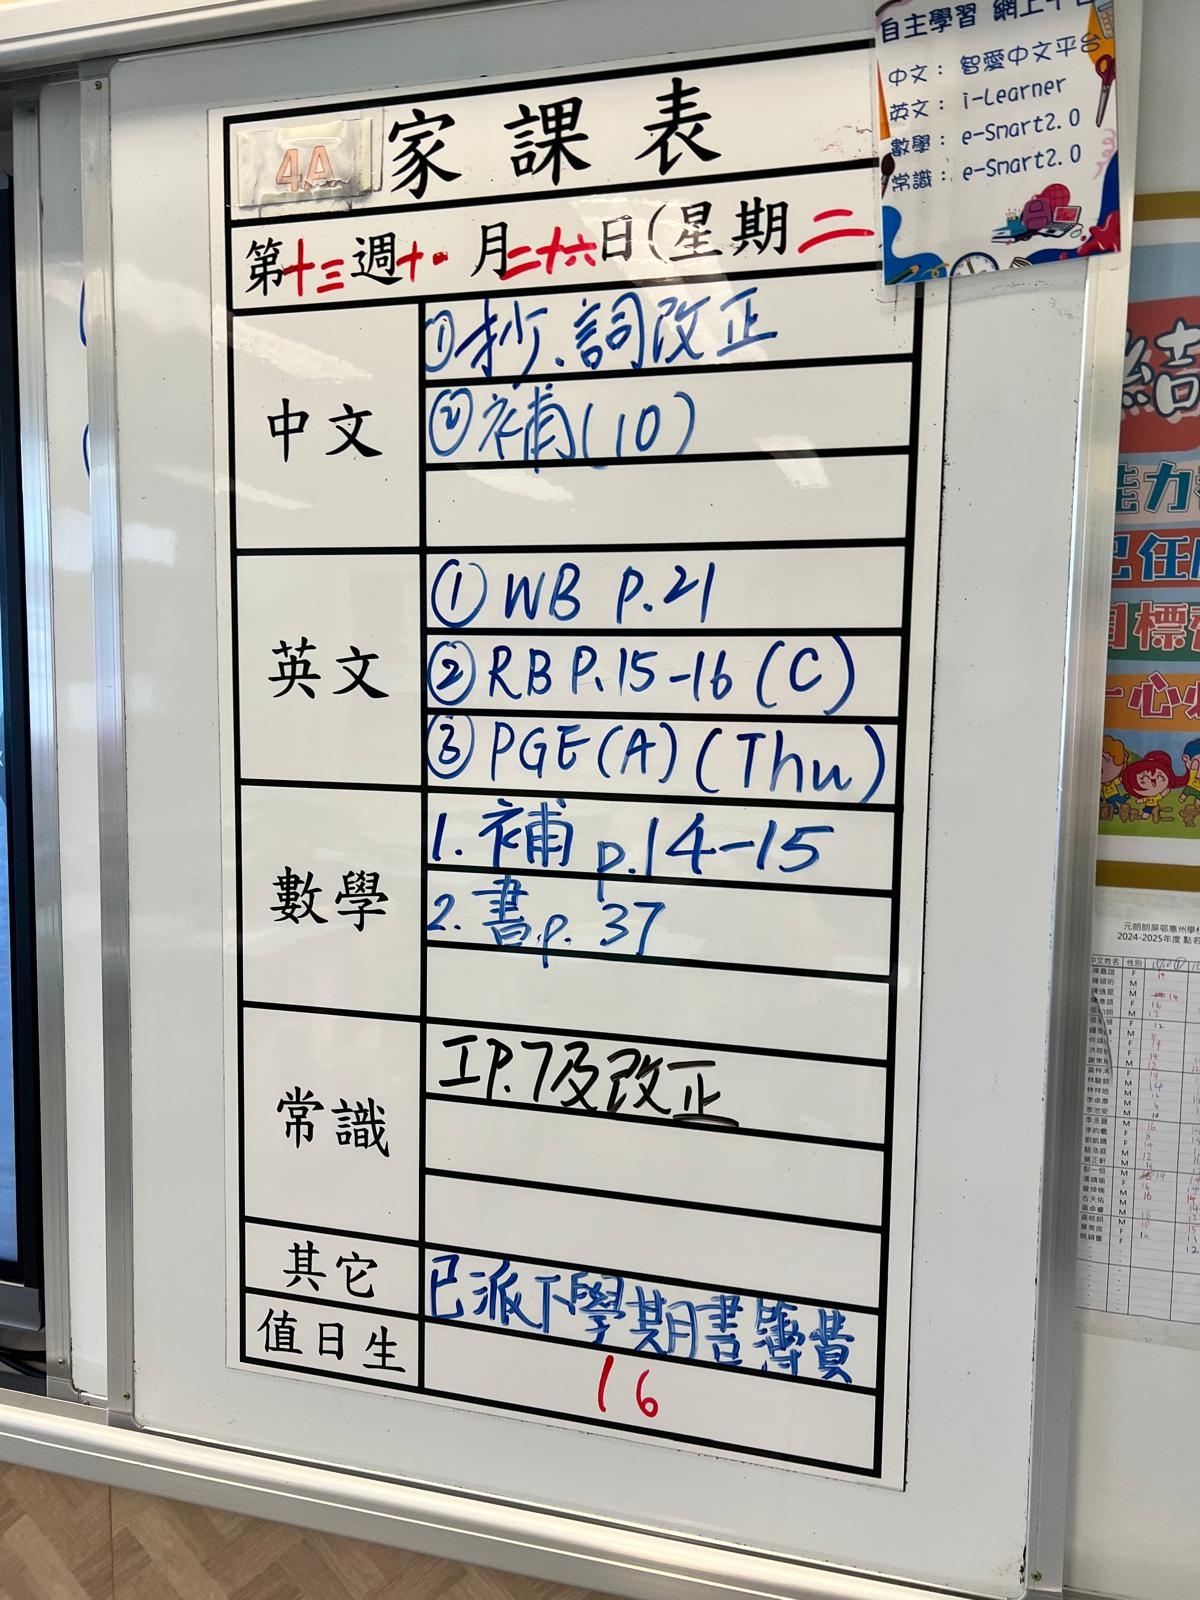 4A
家課表
第十三週十一月二十六日(星期二
中文
①抄.詞改正
②補(10)
英文
① WB P.21
② RB P.15-16 (C)
③ PGE(A) (Thu)
數學
1. 補 p.14-15
2. 書p. 37
常識
工P.7及改正
其它
已派下學期書簿費
值日生
16
自主學習 網上平台
中文： 智愛中文平台
英文： i-Learner
數學： e-Smart2.0
常識： e-Smart2.0
能力
己任
目標
一心
元朗朗屏邨惠州學校
2024-2025年度 點名
中文姓名 性別